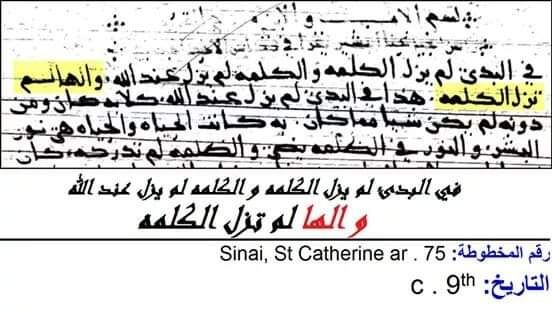 في البدى لم يزل الكلمه و الكلمه لم يزل عند الله. والها لم
تزل الكلمه. هذا في البدى لم يزل عند الله. كلا به كان ومن
دونه لم يكن شيا مما كان. به كانت الحياه والحياه هي نور
البشر. و النور في الظلمه يضي. و الظلمه لم تدركه. كان
في البدى لم يزل الكلمه و الكلمه لم يزل عند الله
و الها لم تزل الكلمه
رقم المخطوطة: Sinai, St Catherine ar . 75
التاريخ: c . 9th